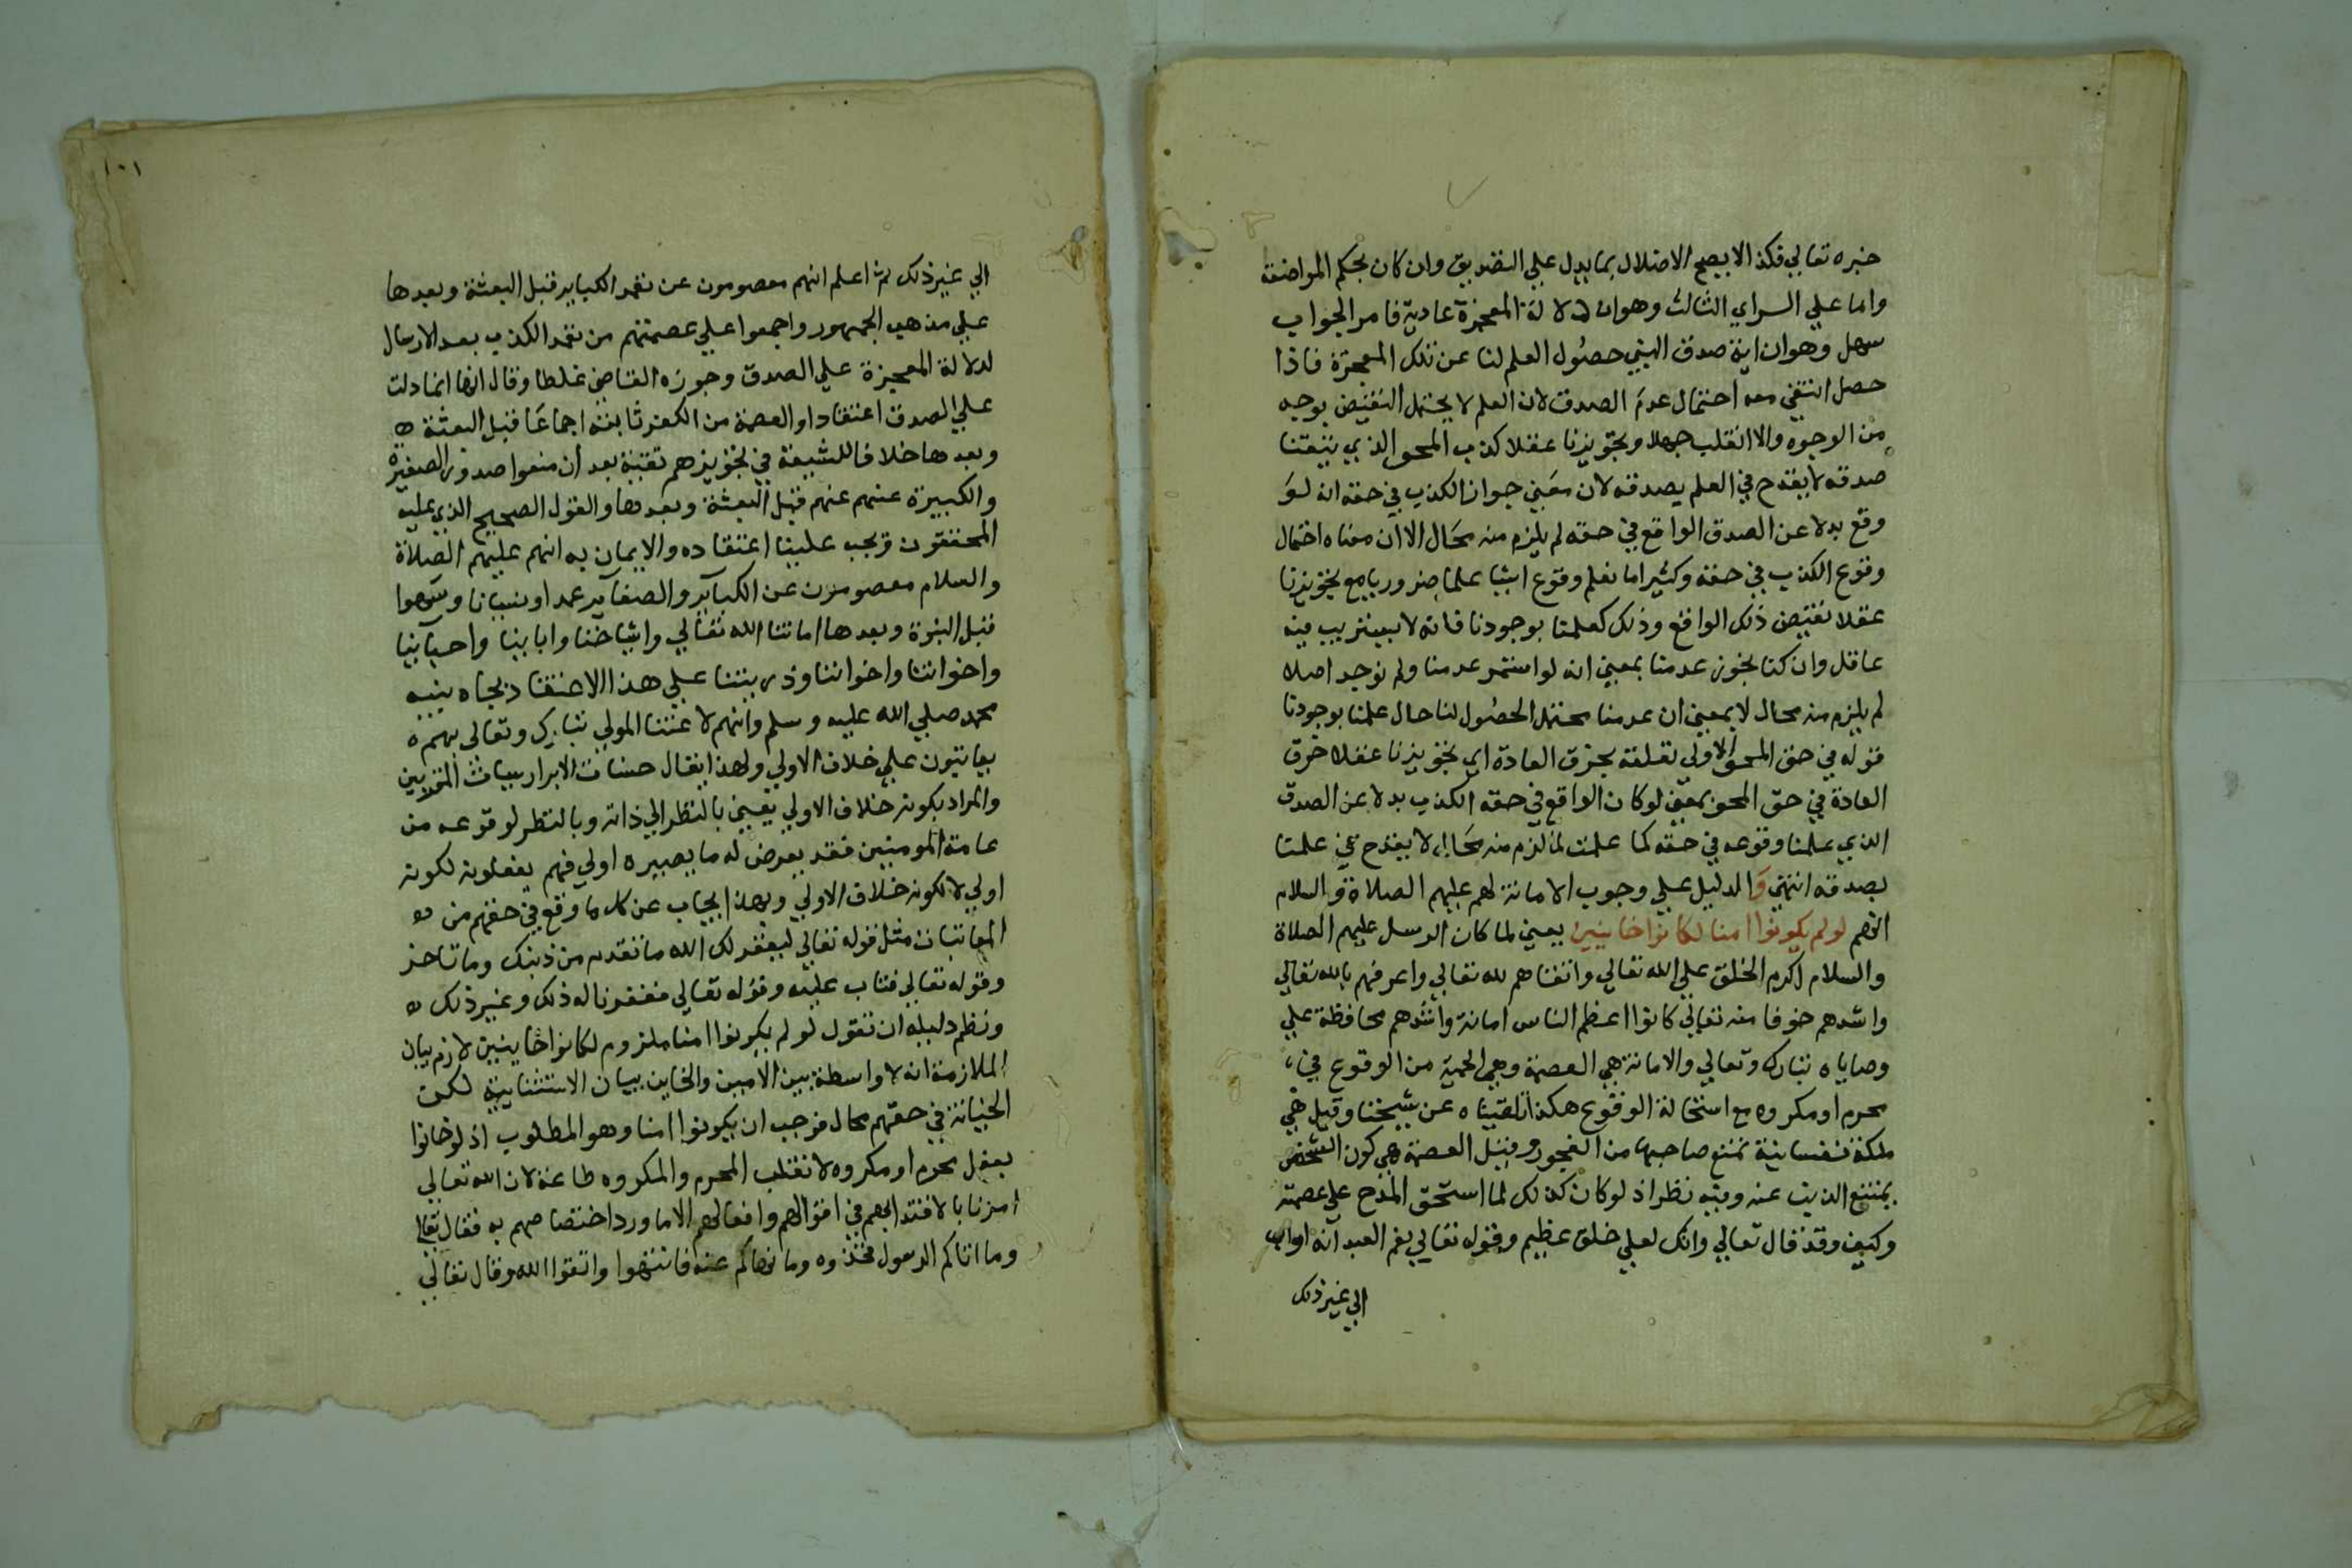 خبره تعالي فكذا لا يصح الاضلال بما يدل علي التصديق وان كان بحكم المواضعة
واما علي الراي الثالث وهو ان دلالة المعجزة عادية فامر الجواب
سهل وهو ان اية صدق النبي حصول العلم لنا عن تلك المعجزة فاذا
حصل انتفي معه احتمال عدم الصدق لان العلم لا يحتمل النقيض بوجه
من الوجوه والا انقلب جهلا وتجويزنا عقلا كذب المحق الذي تيقنا
صدقه لا يقدح في العلم بصدقه لان معني جواز الكذب في حقه انه لو
وقع بدلا عن الصدق الواقع في حقه لم يلزم منه محال الا ان معناه احتمال
وقوع الكذب في حقه وكثيرا ما نعلم وقوع اشيا علما ضروريا مع تجويزنا
عقلا نقيض ذلك الواقع وذلك كعلمنا بوجودنا فانه لا يستريب فيه
عاقل وان كنا نجوز عدمنا بمعني انه لو استمر عدمنا ولم نوجد اصلا
لم يلزم منه محال لا بمعني ان عدمنا محتمل الحصول لنا حال علمنا بوجودنا
قوله في حق المحق الاولي تعلقه بخرق العادة اي تجويزنا عقلا خرق
العادة في حق المحق بمعني لو كان الواقع في حقه الكذب بدلا عن الصدق
الذي علمنا وقوعه في حقه كما علمت لما لزم منه محال لا يقدح في علمنا
بصدقه انتهي والدليل علي وجوب الامانة لهم عليهم الصلاة والسلام
انهم لو لم يكونوا امنا لكانوا خاينين يعني لما كان الرسل عليهم الصلاة
والسلام اكرم الخلق علي الله تعالي واتقاهم لله تعالي واعرفهم بالله تعالي
واشدهم خوفا منه تعالي كانوا اعظم الناس امانة واشدهم محافظة علي
وصاياه تبارك وتعالي والامانة هي العصمة وهي الحمية من الوقوع في
محرم او مكروه مع استحالة الوقوع هكذا تلقيناه عن شيخنا وقيل هي
ملكة نفسانية تمنع صاحبها من الفجور وقيل العصمة هي كون الشخص
يمتنع الذنب عنه وفيه نظر اذ لو كان كذلك لما استحق المدح علي عصمته
وكيف وقد قال تعالي وانك لعلي خلق عظيم وقوله تعالي نعم العبد انه اواب
الي غير ذلك
١٠١
الي غير ذلك ثم اعلم انهم معصومون عن تعمد الكباير قبل البعثة وبعدها
علي مذهب الجمهور واجمعوا علي عصمتهم من تعمد الكذب بعد الارسال
لدلالة المعجزة علي الصدق وجوزه القاضي غلطا وقال انها انما دلت
علي الصدق اعتقادا والعصمة من الكفر ثابتة اجماعا قبل البعثة
وبعدها خلافا للشيعة في تجويزهم تقية بعد ان منعوا صدور الصغيرة
والكبيرة عنهم عنهم قبل البعثة وبعدها والقول الصحيح الذي عليه
المحققون ويجب علينا اعتقاده والايمان به انهم عليهم الصلاة
والسلام معصومون عن الكباير والصغاير عمدا ونسيانا وسهوا
قبل النبوة وبعدها اماتنا الله تعالي واشياخنا وابابينا واحبابنا
واخواننا واخواتنا وذريتنا علي هذا الاعتقاد بجاه نبيه
محمد صلي الله عليه وسلم وانهم لاعتنا المولي تبارك وتعالي بهم
يعاتبون علي خلاف الاولي ولهذا يقال حسنات الابرار سيات المقربين
والمراد بكونه خلاف الاولي يعني بالنظر الي ذاته وبالنظر لوقوعه من
عامة المومنين فقد يعرض له ما يصيره اولي فهم يفعلونه لكونه
اولي لا لكونه خلاف الاولي وبهذا يجاب عن كل ما وقع في حقهم من
المعاتبات مثل قوله تعالي ليغفر لك الله ما تقدم من ذنبك وما تاخر
وقوله تعالي فتاب عليه وقوله تعالي فغفرنا له ذلك وغير ذلك
ونظم دليله ان تقول لو لم يكونوا امنا ملزوم لكانوا خاينين لازم بيان
الملازمة انه لا واسطة بين الامين والخاين بيان الاستثنايية لكن
الخيانة في حقهم محال فوجب ان يكونوا امنا وهو المطلوب اذ لو خانوا
بفعل محرم او مكروه لانقلب المحرم والمكروه طاعة لان الله تعالي
امرنا بالاقتدا بهم في اقوالهم وافعالهم الا ما ورد اختصاصهم به فقال تعالي
وما اتاكم الرسول فخذوه وما نهاكم عنه فانتهوا واتقوا الله وقال تعالي